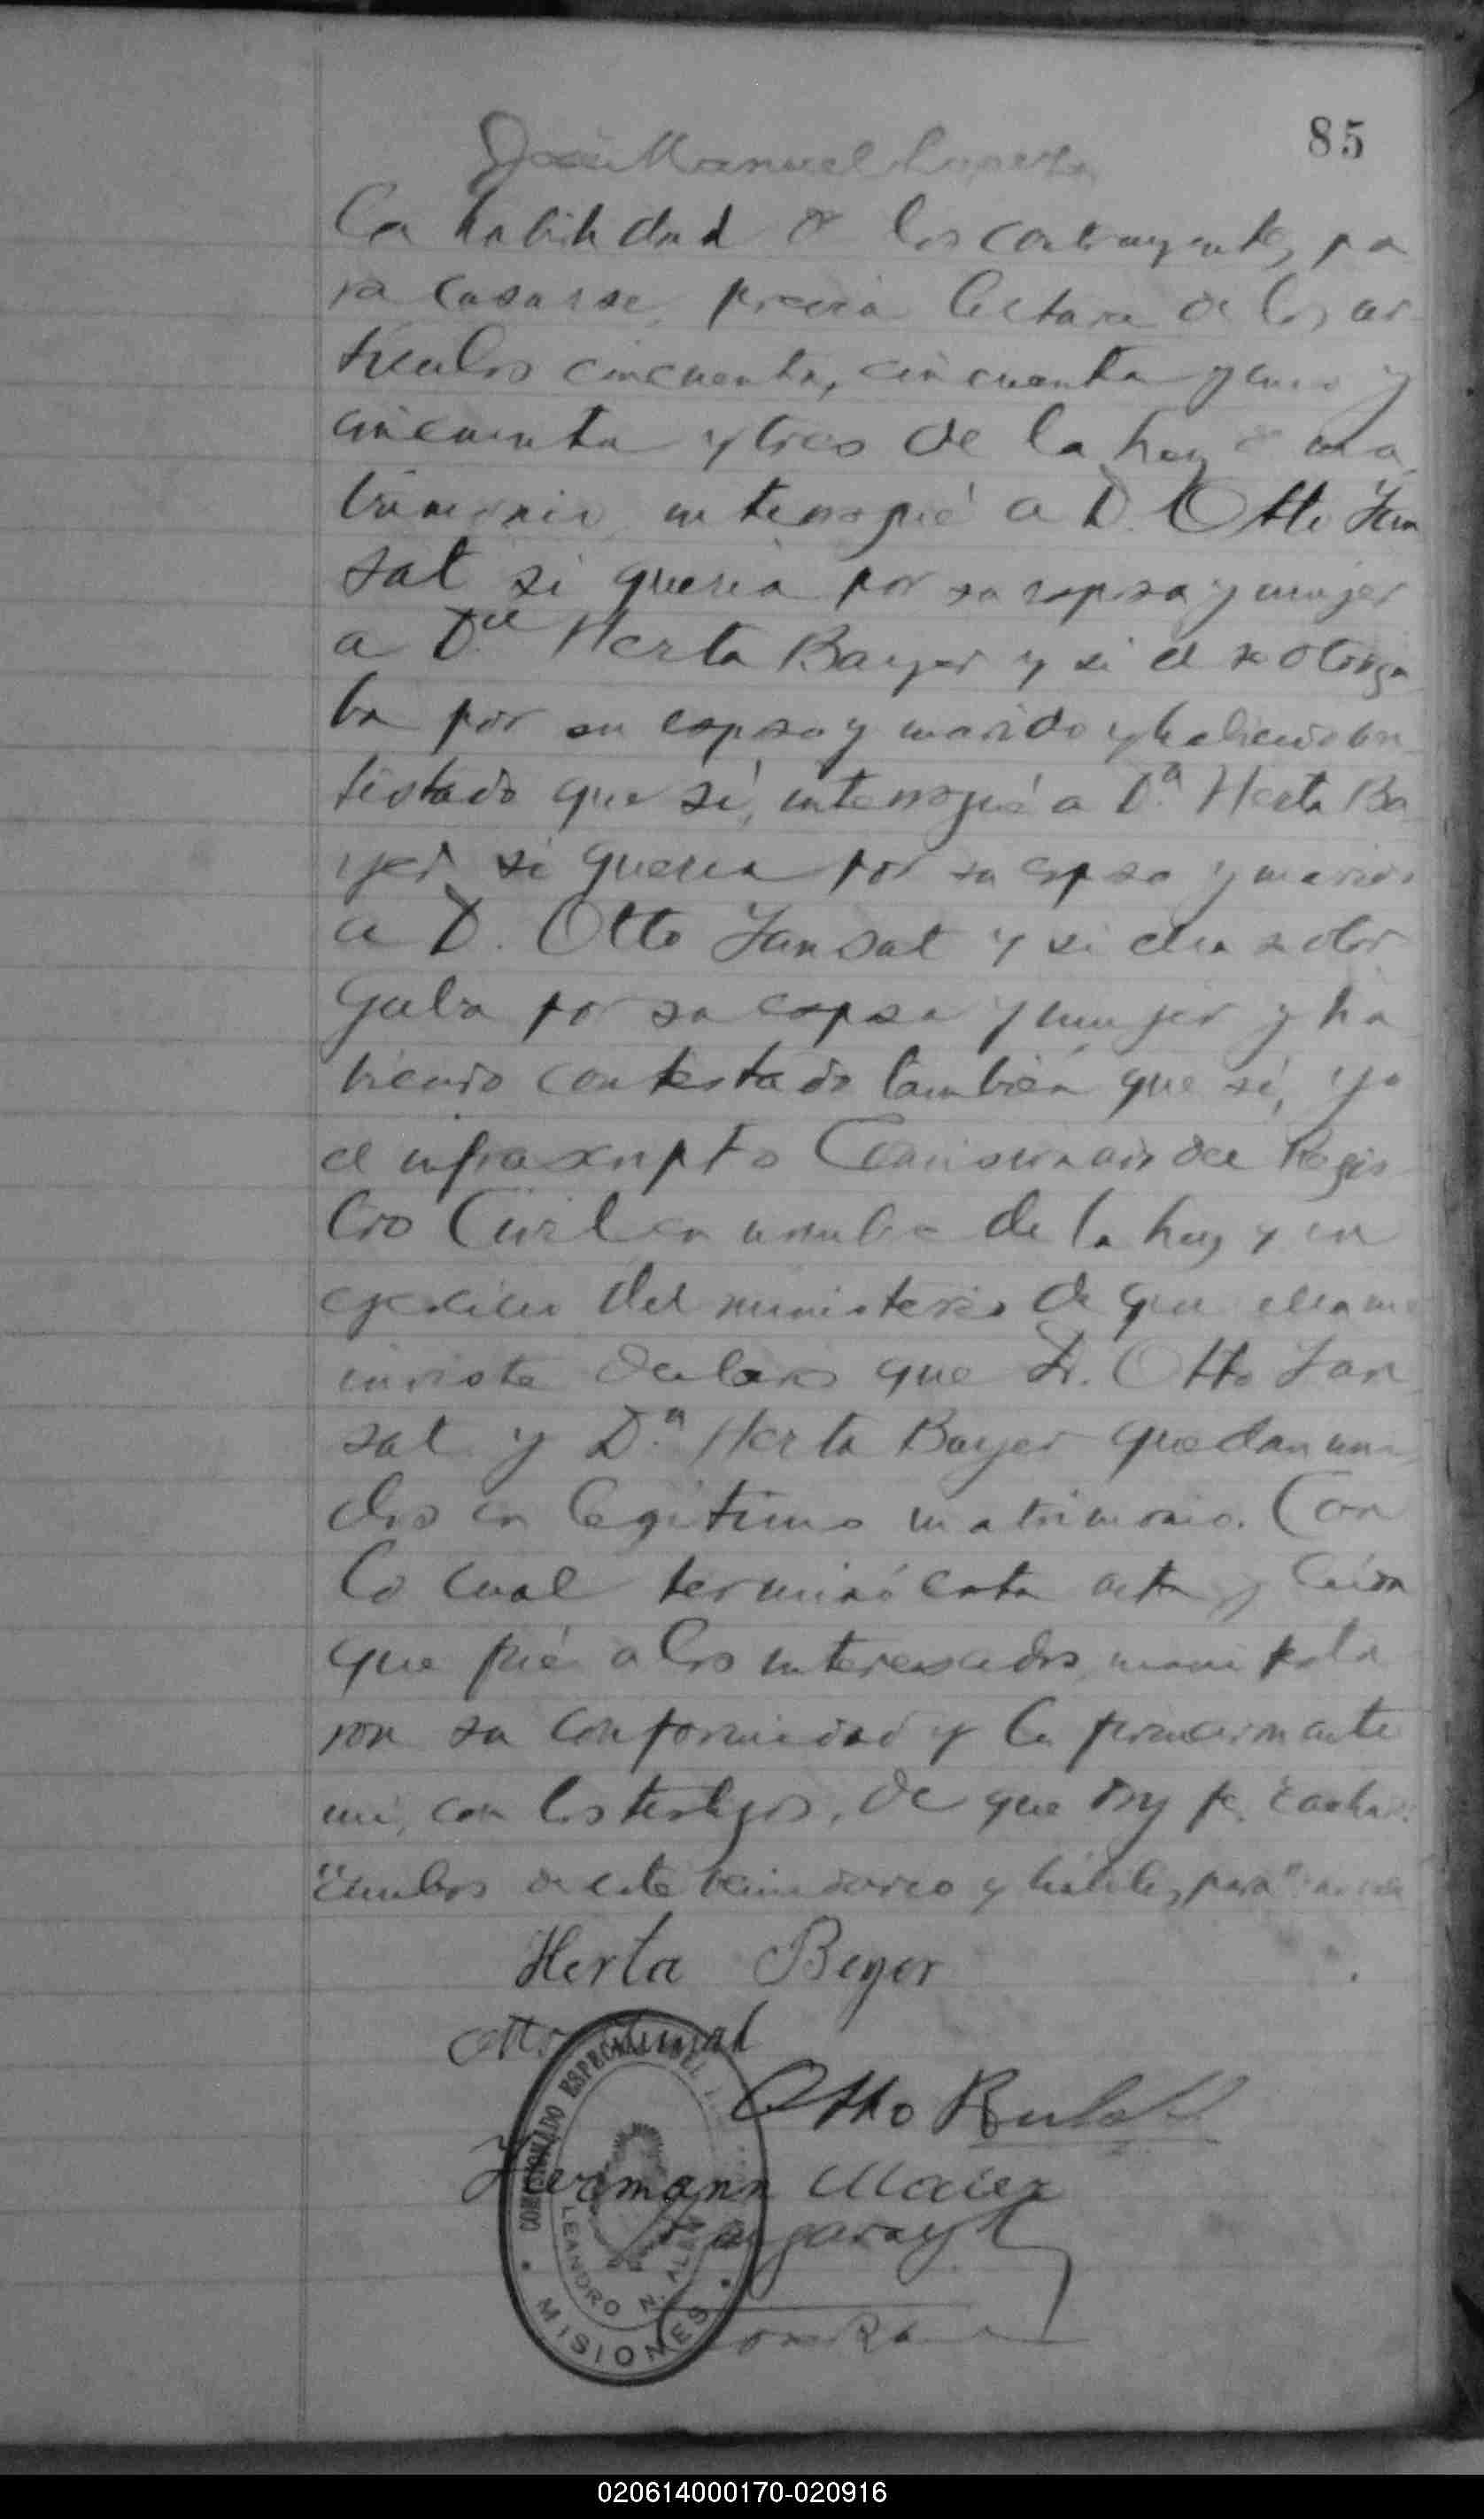 85
José Manuel
La habilidad de los contrayentes pa
ra casarse, previa lectura de los ar
tículos cincuenta, cincuenta y uno y
cincuenta y tres de la Ley de ma
trimonio, interrogué a D. Otto Jan
sat si quería por su esposa y mujer
a Da Herta Bayer y si el se otorga
ba por su esposo y marido y habiendo con
testado que sí, interrogué a D.a Herta Ba
yer si quería por su esposo y marido
a D. Otto Jansat y si ella se otor
gaba por su esposa y mujer y ha
biendo contestado también que sí, yo
el infrascripto Comisionado del Regis
tro Civil en nombre de la Ley y en
ejercicio del ministerio de que ella me
inviste declaro que D. Otto Jan
sat y D.a Herta Bayer quedan uni
dos en legítimo matrimonio. Con
lo cual terminó esta acta y leída
que fué a los interesados, manifesta
ron su conformidad y la firmaron ante
mi, con los testigos, de que doy fe.
de este vecindario y hábiles para"
Herta Beyer
Otto Rul
Hermann Maier
COMISIONADO ESPECIAL DEL
LEANDRO N. ALEM
MISIONES
020614000170-020916